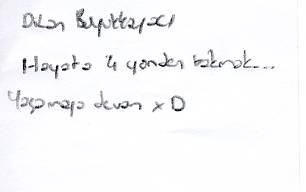 Dilan Büyükkayacı
Hayata 4 yönden bakmak...
Yaşamaya devam xD